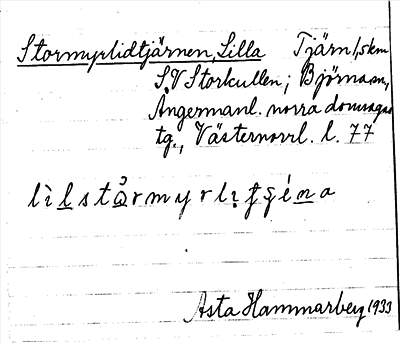 Stormyrlidtjärnen, Lilla Tjärn 1,5 km
S.V Storkullen; Björna sn,
Ångermanl. norra domsagas
tg., Västernorrl. l. 77
Asta Hammarberg 1933